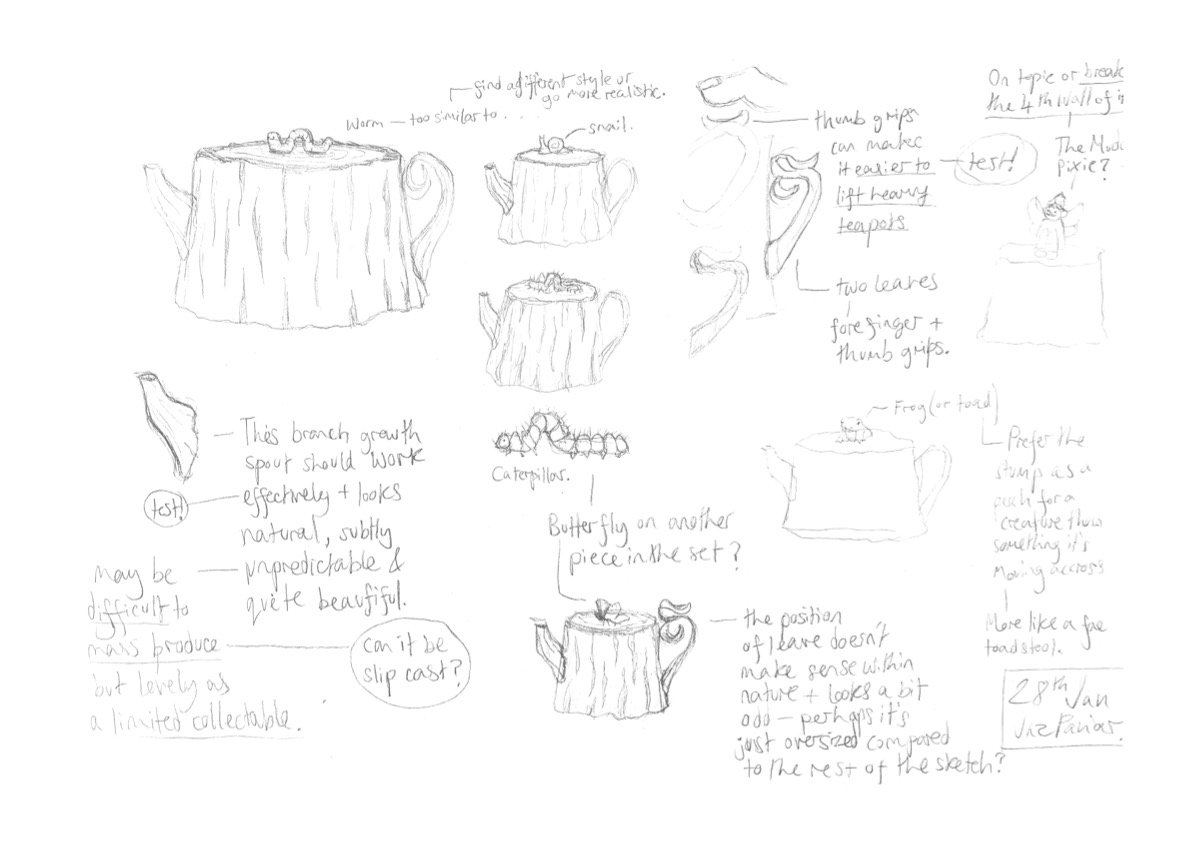 find a different style or
go more realistic.
Worm — too similar to . . . .
snail.
thumb grips
can make
it easier to
lift heavy
teapots
test!
two leaves
forefinger +
thumb grips.
On topic or break
the 4th wall of i
The Mud
Pixie?
This branch growth
spout should work
effectively + looks
natural, subtly
unpredictable &
quite beautiful.
test!
may be
difficult to
mass produce
but lovely as
a limited collectable.
can it be
slip cast?
Caterpillar.
Butterfly on another
piece in the set?
the position
of leave doesn't
make sense within
nature + looks a bit
odd — perhaps it's
just oversized compared
to the rest of the sketch?
Frog (or toad)
Prefer the
stump as a
perch for a
creature than
something it's
moving accross
More like a fae
toadstool.
28th Jan